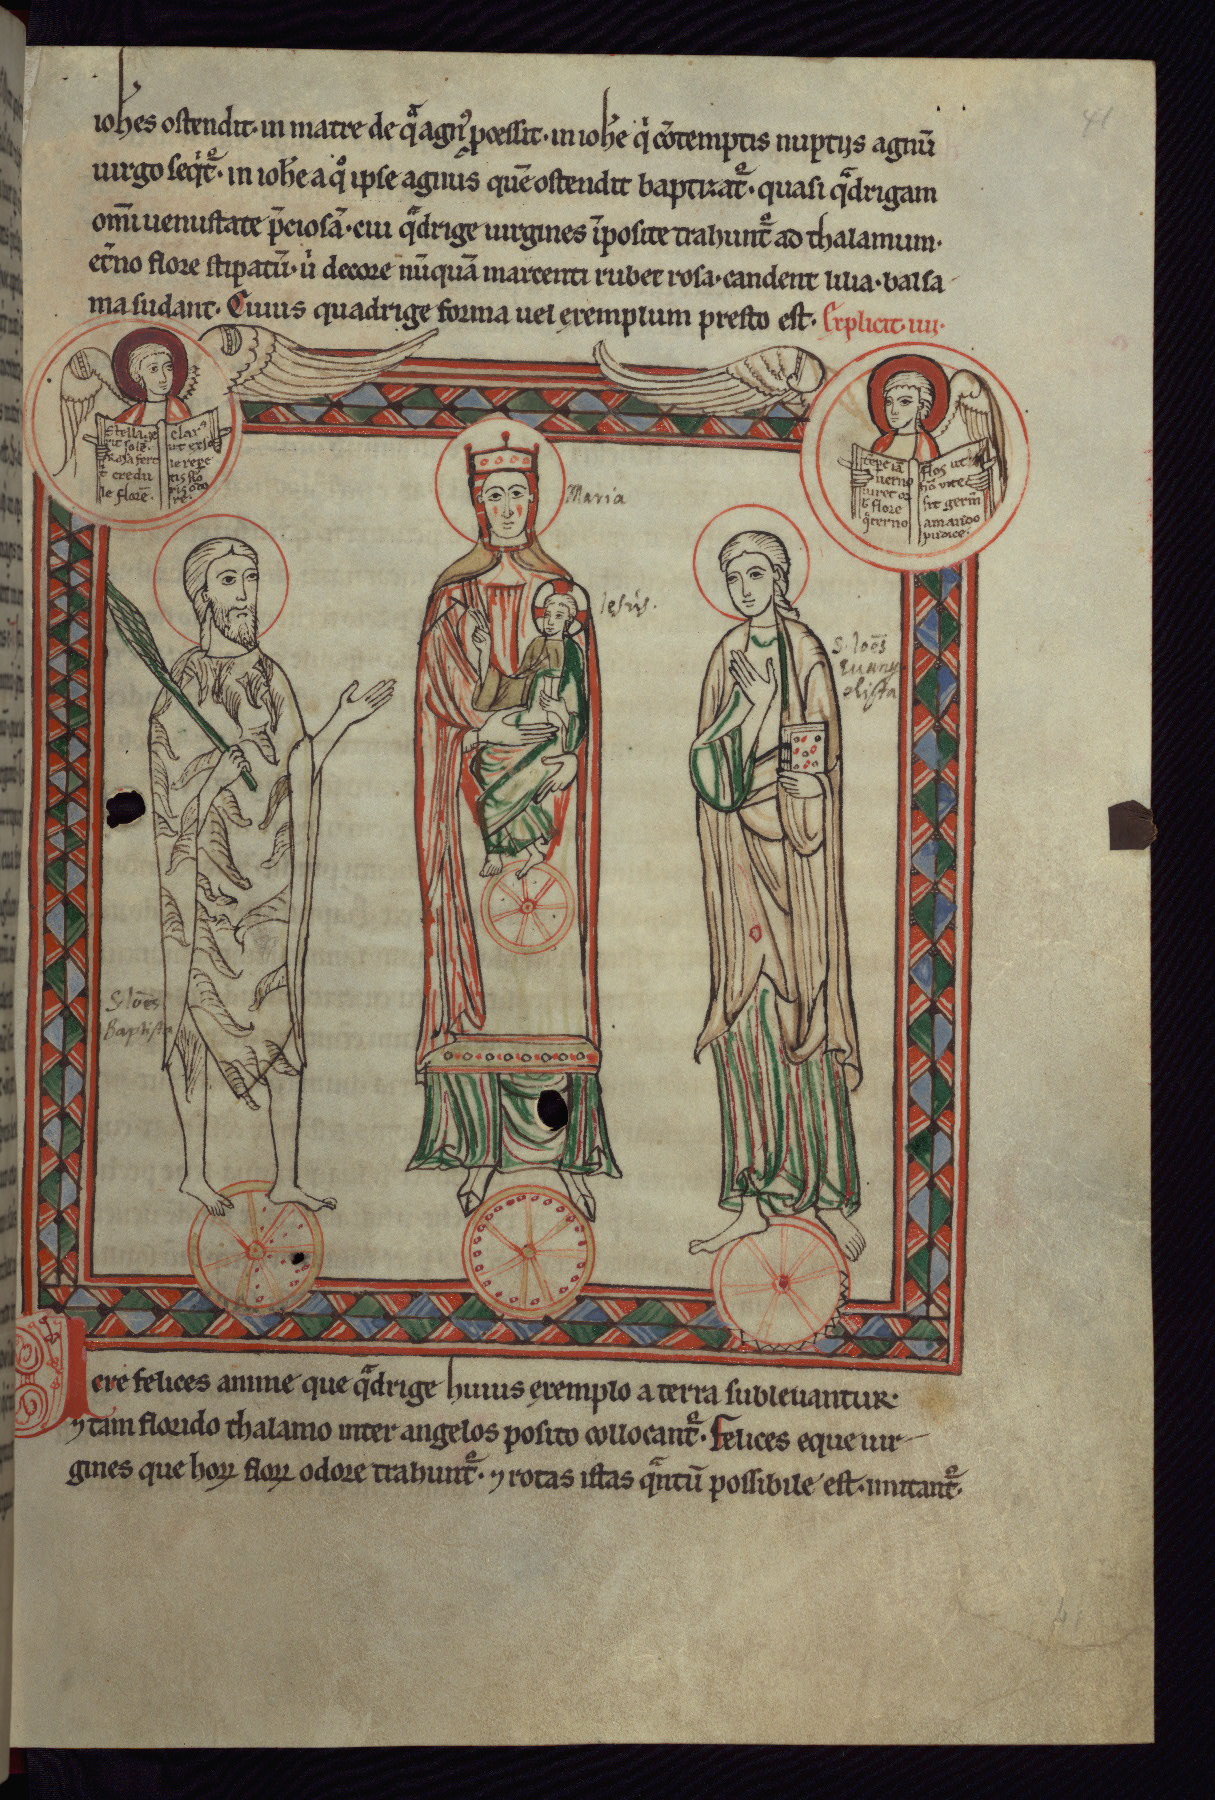 ioh̄es ostendit· in matre de q̄a agn᷒ p̱cessit· in ioh̄e q̇ cōtemptis nuptijs agnū
uirgo seq̇t᷑· in ioh̄e a q̊ ipse agnus quē ostendit baptizat᷑· quasi q̄drigam
om̄i uenustate p̄ciosā· cui q̄drige uirgines īposite trahunt᷑ ad thalamum·
et̄no flore stipatū· u̇ decore nūquā marcenti rubet rosa· candent lilia· balsa
ma sudant· Cuius quadrige forma uel exemplum presto est· Explicit· iiii·
Stella
ut sole
credu
le florē·
clar᷒
flore
q̄terno
flos ut
sit germ̄
amando
pudice·
Maria
Iesus·
S. Ioēs
Euang
elista
S. Ioēs
Baptista
41
ere felices anime que q̄drige huius exemplo a terra subleuantur·
⁊ tam florido thalamo inter angelos posito collocant᷑· Felices eque uir
gines que hoꝝ floꝝ odore trahunt᷑· ⁊ rotas istas q̄ntū possibile est· imitant᷑·
41